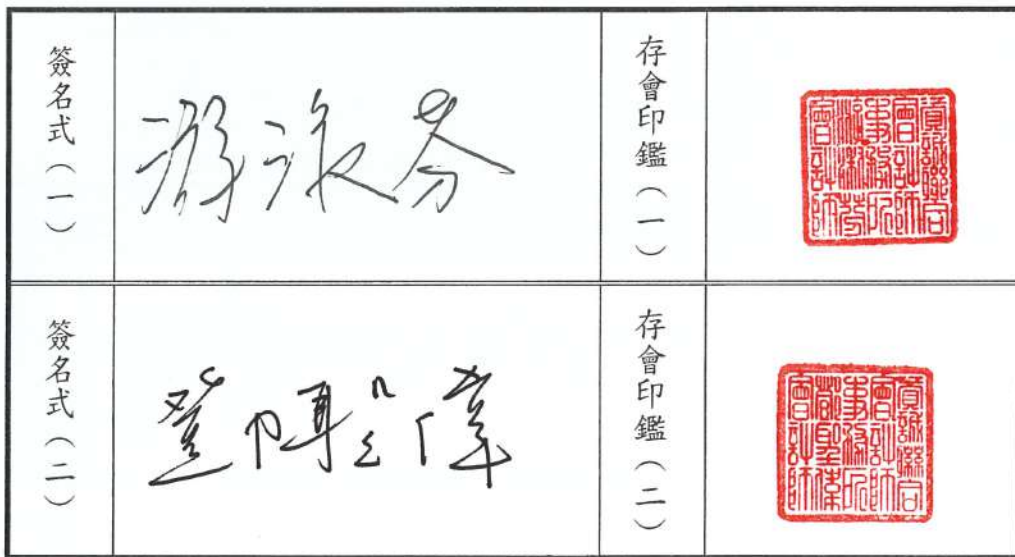 簽名式(一)
游淑芬
存會印鑑(一)
資誠聯合
會計師
事務所
游淑芬
會計師
簽名式(二)
鄧聖偉
存會印鑑(二)
資誠聯合
會計師
事務所
鄧聖偉
會計師